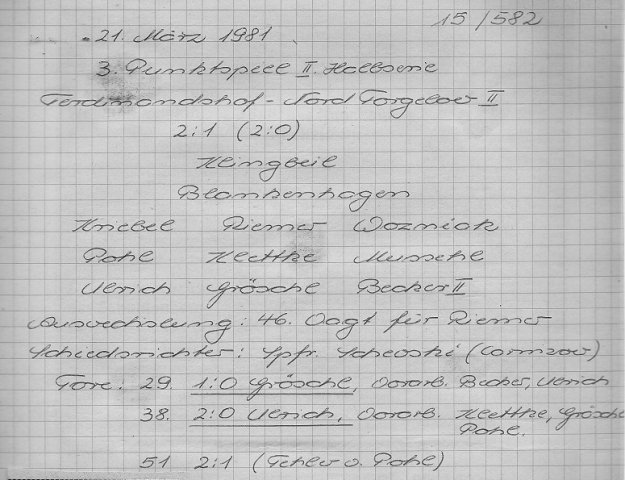 15/582
21. März 1981
3. Punktspiel II. Halbserie
Ferdinandshof - Nord Torgelow II
2:1 (2:0)
Klingbeil
Blankenhagen
Kniebel Riemer Wozniak
Pohl Klettke Muschel
Ulrich Grösche Becker II
Auswechslung: 46. Vogt für Riemer
Schiedsrichter: Spfr. Schewski (Cormzow)
Tore: 29. 1:0 Grösche, Vorarb. Becker, Ulrich
38. 2:0 Ulrich, Vorarb. Klettke, Grösche
Pohl.
51 2:1 (Fehler v. Pohl)